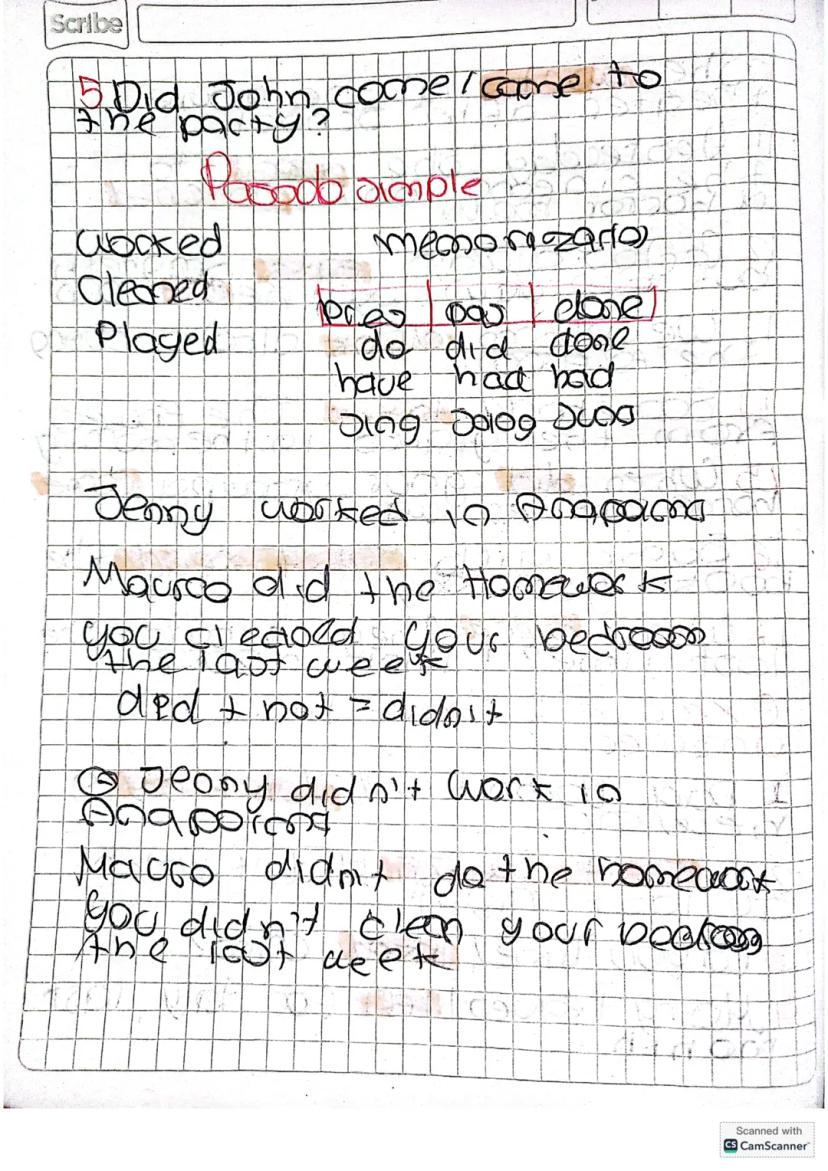 Scribe
5 Did John come / came to
the party?
Pasado simple
worked memorizarlo
Cleaned
pres pas done
Played
do did done
have had had
sing sang sung
Jenny worked in
Mauro did the Homework
you cleaned your bedroom
the last week
did + not = didn't
Jenny didn't work in
Mauro didn't do the homework
you didn't clean your
the last week
Scanned with
CS CamScanner